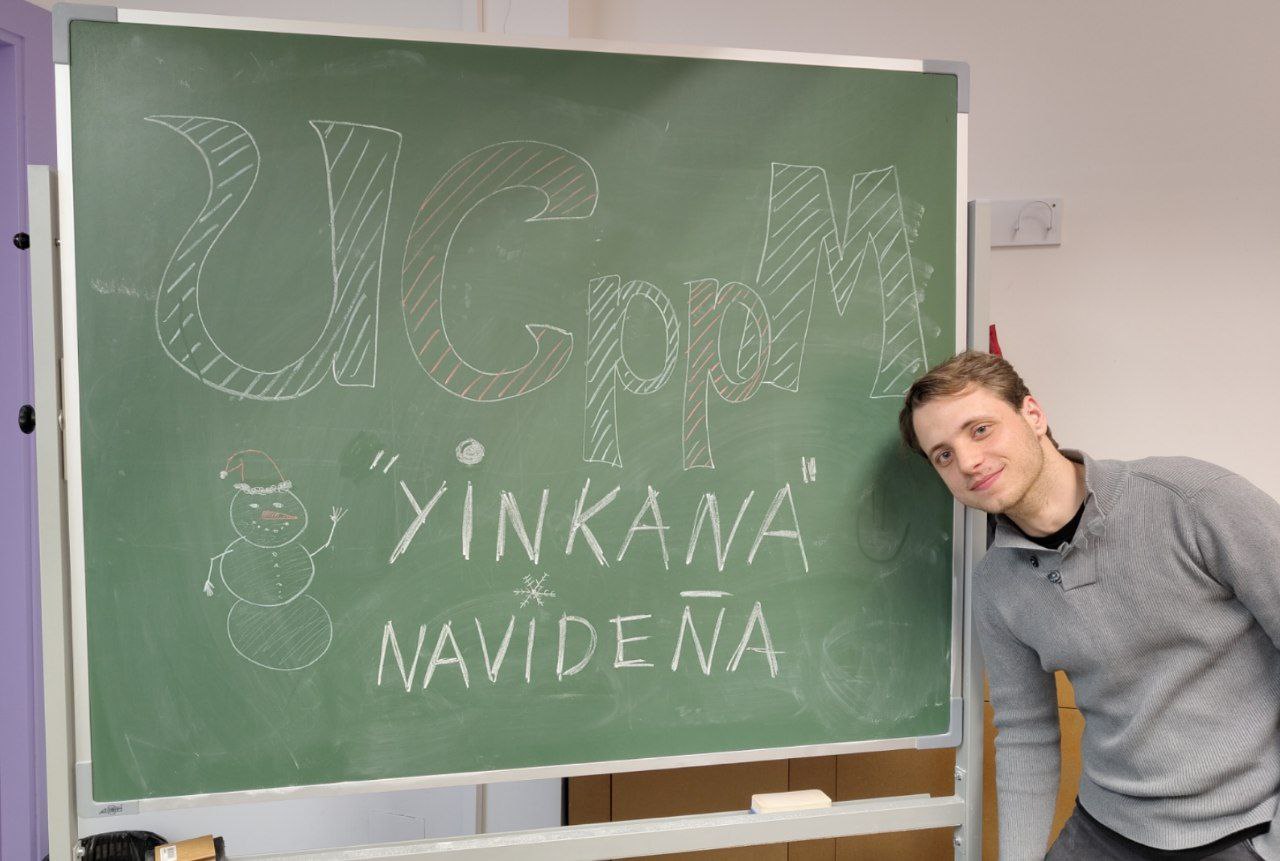 UCppM
"YINKANA"
NAVIDEÑA